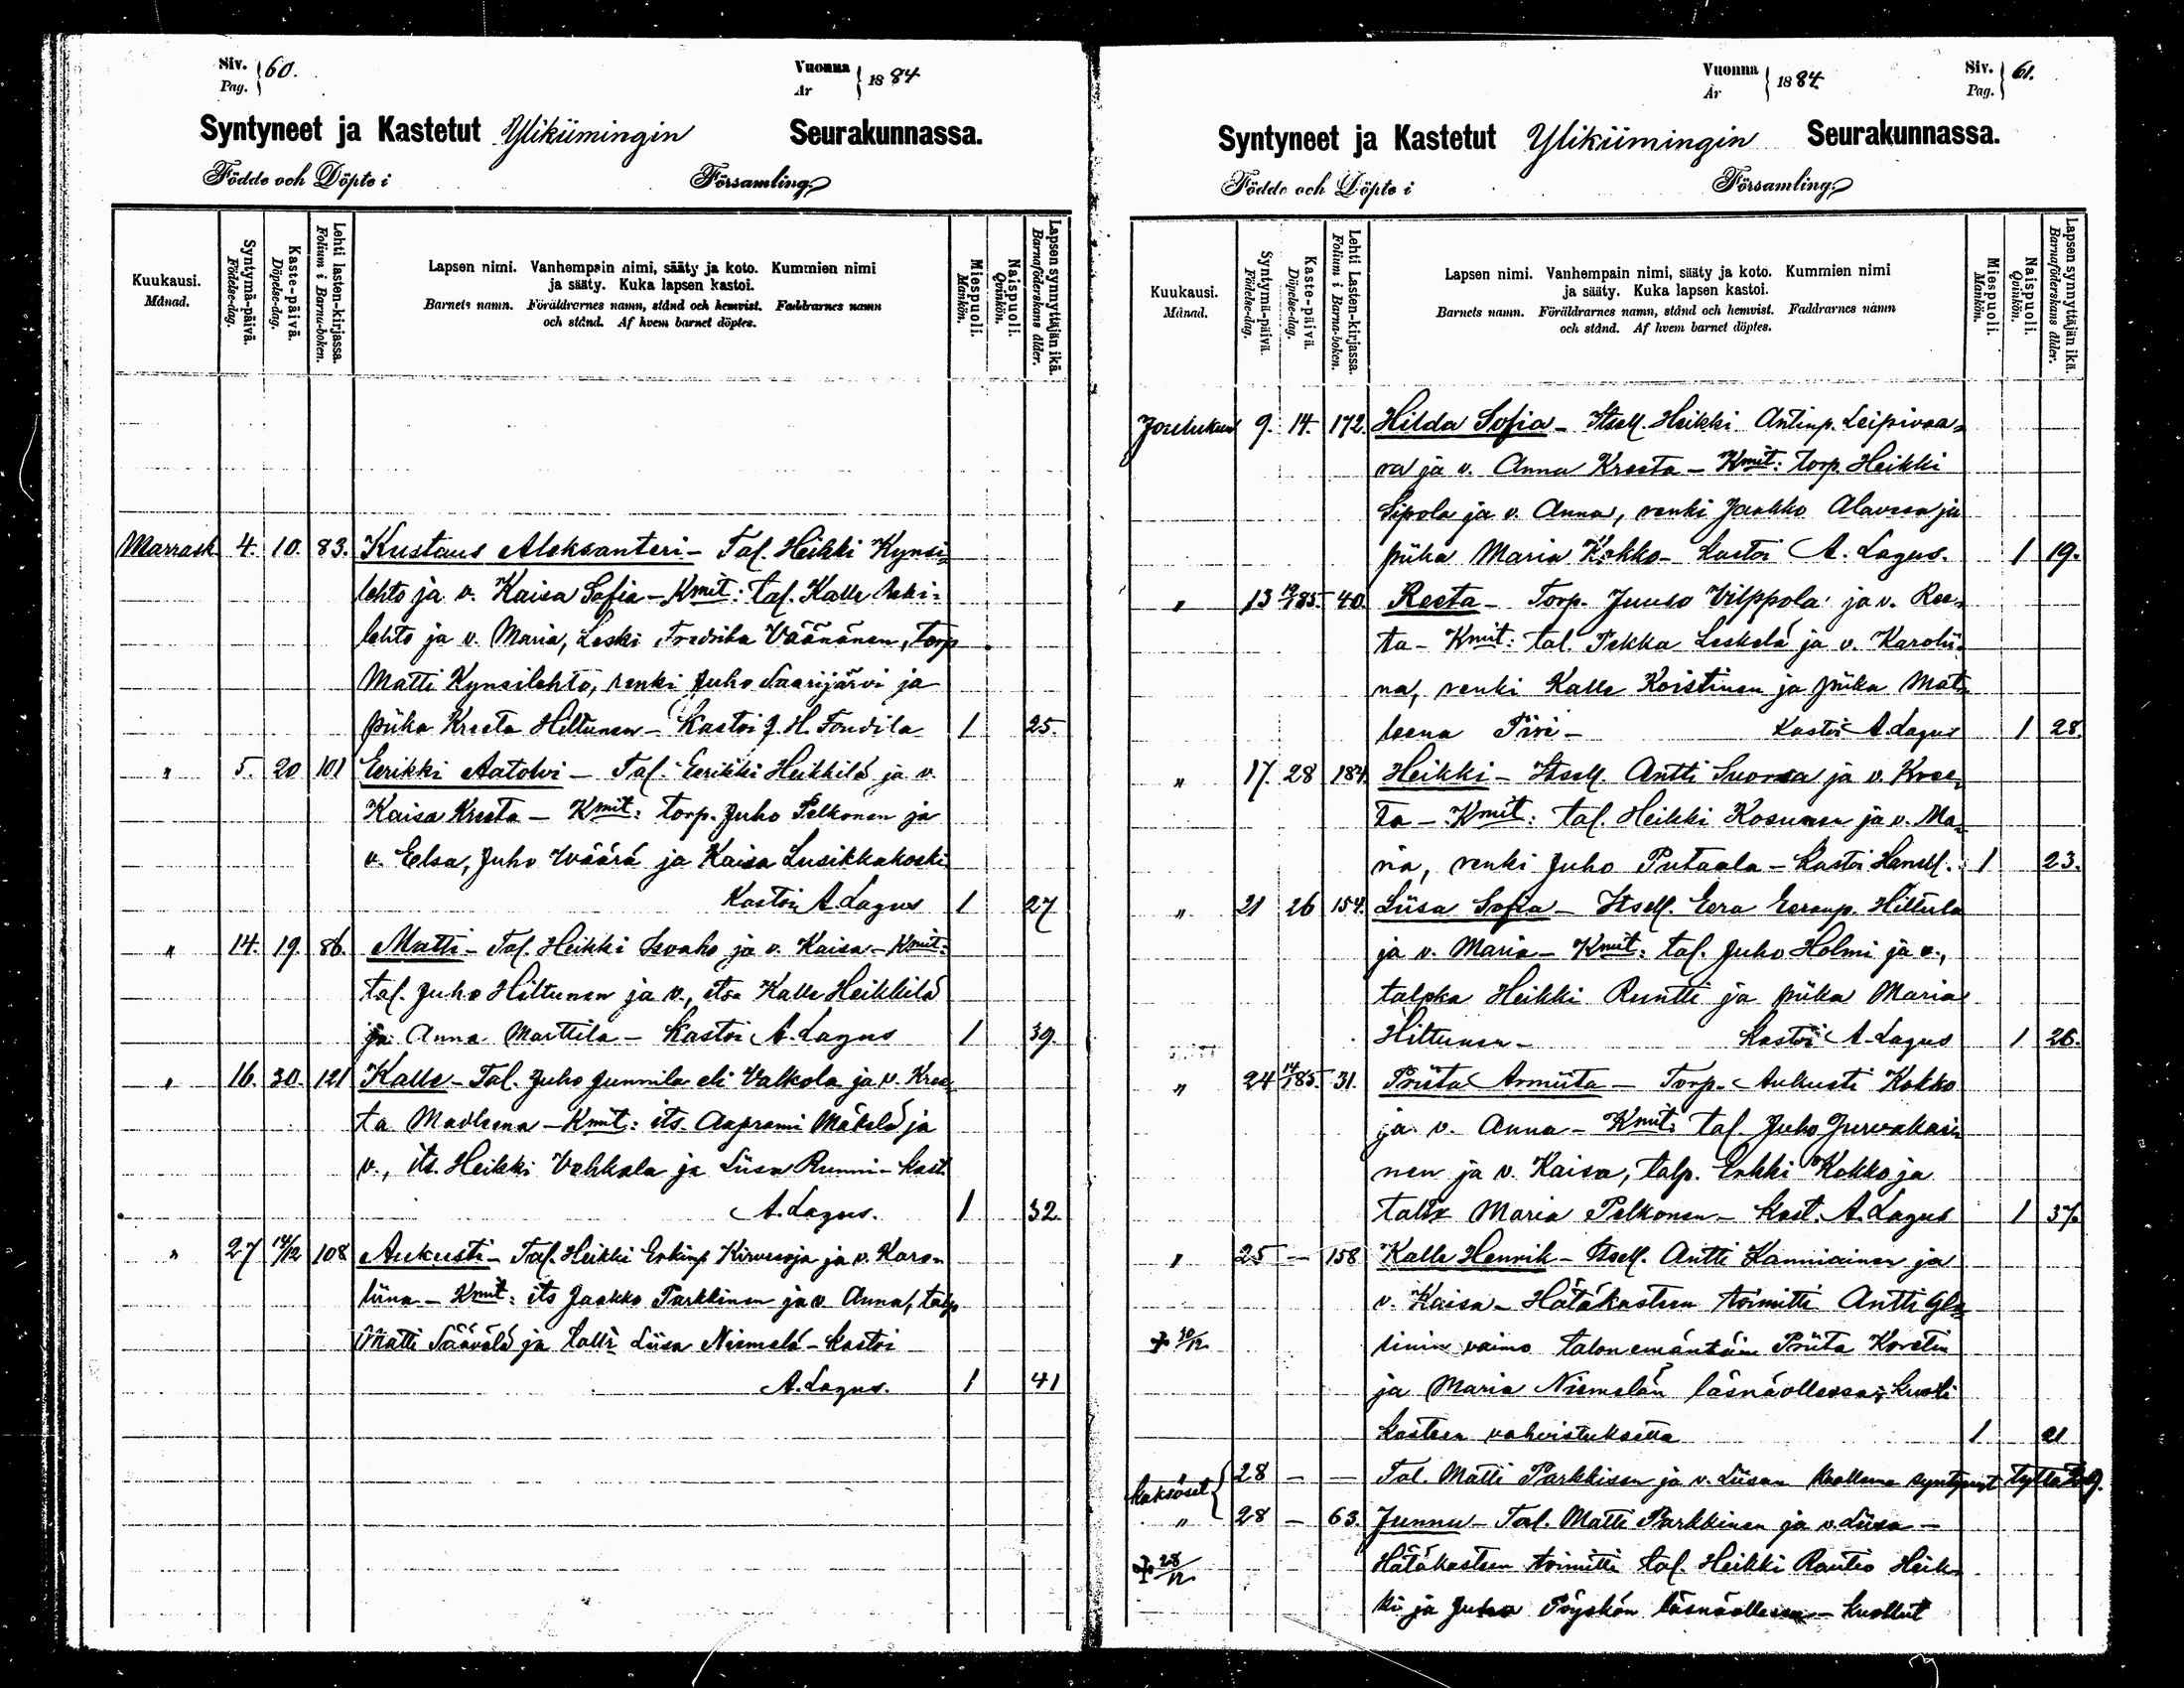 Siv. 60.
Pag.
Vuonna 1884
År
Syntyneet ja Kastetut Ylikiimingin Seurakunnassa.
Födde och Döpte i Församling
Kuukausi.
Månad.
Syntymä-päivä.
Födelse-dag.
Kaste-päivä.
Döpelse-dag.
Lehti lasten-kirjassa.
Folium i Barna-boken.
Lapsen nimi. Vanhempain nimi, sääty ja koto. Kummien nimi
ja sääty. Kuka lapsen kastoi.
Barnets namn. Föräldrarnes namn, stånd och hemvist. Faddrarnes namn
och stånd. Af hvem barnet döptes.
Miespuoli.
Mankön.
Naispuoli.
Qvinkön.
Lapsen synnyttäjän ikä.
Barnaföderskans ålder.
Marrask 4. 10. 83. Kustaus Aleksanteri - Tal. Heikki Kynsi-
lehto ja v. Kaisa Sofia - Kmit: tal. Kalle
lehto ja v. Maria, Leski Fredrika Väänänen, torp
Matti Kynsilehto, renki Juho Saarijärvi ja
piika Kreeta Hiltunen - Kastoi J. H. 1 25.
" 5. 20 101 Eerikki Aatolvi - Tal. Eerikki Heikkilä ja v.
Kaisa Kreeta - Kmit: torp. Juho Pelkonen ja
v. Elsa, Juho Väärä ja Kaisa Lusikkakoski
Kastoi A. Lagus 1 27
" 14. 19. 86. Matti - Tal. Heikki ja v. Kaisa - Kmit:
tal. Juho Hiltunen ja v., its. Kalle Heikkilä
ja Anna Marttila - Kastoi A. Lagus 1 39.
" 16. 30. 121 Kalle - Tal. Juho Junnila eli Valkola ja v. Kree-
ta Madleena - Kmit: its. Aaprami Mäkelä ja
v., its. Heikki Vehkala ja Liisa Runni - Kast.
A. Lagus. 1 32.
" 27 14/12 108 Aukusti - Tal. Heikki Erkinp. Kirvesoja ja v. Karo-
liina - Kmit: its Jaakko Parkkinen ja v. Anna, talp
Matti Säävälä ja talltr Liisa Niemelä - Kastoi
A. Lagus. 1 41
Vuonna 1884
År
Siv. 61.
Pag.
Syntyneet ja Kastetut Ylikiimingin Seurakunnassa.
Födde och Döpte i Församling
Kuukausi.
Månad.
Syntymä-päivä.
Födelse-dag.
Kaste-päivä.
Döpelse-dag.
Lehti Lasten-kirjassa.
Folium i Barna-boken.
Lapsen nimi. Vanhempain nimi, sääty ja koto. Kummien nimi
ja sääty. Kuka lapsen kastoi.
Barnets namn. Föräldrarnes namn, stånd och hemvist. Faddrarnes namn
och stånd. Af hvem barnet döptes.
Miespuoli.
Mankön.
Naispuoli.
Qvinkön.
Lapsen synnyttäjän ikä.
Barnaföderskans ålder.
Joulukuu 9. 14. 172. Hilda Sofia - Itsell. Heikki Antinp. Leipivaa-
ra ja v. Anna Kreeta - Kmit: torp. Heikki
Sipola ja v. Anna, renki Jaakko Alavesa ja
piika Maria Kokko - Kastoi A. Lagus. 1 19.
" 13 40. Reeta - Torp. Juuso Vilppola ja v. Ree-
ta - Kmit: tal. Pekka Leskelä ja v. Karolii-
na, renki Kalle Koistinen ja piika Mat-
leena Piri - Kastoi A. Lagus 1 28.
" 17. 28 184. Heikki - Itsell. Antti Suorsa ja v. Kree-
ta - Kmit: tal. Heikki Kosunen ja v. Ma-
ria, renki Juho Putaala - Kastoi 1 23.
" 21 26 154. Liisa Sofia - Itsell. Eera Eeranp. Hiltula
ja v. Maria - Kmit: tal. Juho Holmi ja v.,
talpka Heikki Runtti ja piika Maria
Hiltunen - Kastoi A. Lagus 1 26.
" 24 14/1 85. 31. Priita Armiita - Torp. Aukusti Kokko
ja v. Anna - Kmit: tal. Juho Jurvakai-
nen ja v. Kaisa, talp. Erkki Kokko ja
talltr Maria Pelkonen - Kast. A. Lagus 1 37.
" 25 - 158 Kalle Henrik - Itsell. Antti Kanniainen ja
v. Kaisa - Hätäkasteen toimitti Antti
vaimo talon emäntäin Priita
ja Maria Niemelän läsnäollessa; kuoli
† 30/12
kasteen vahvistuksetta 1 21
kaksoset
28 - - Tal. Matti Parkkisen ja v. Liisan kuollena syntynyt tyttö
" 28 - 63. Junnu - Tal. Matti Parkkinen ja v. Liisa -
† 28/12
Hätäkasteen toimitti tal. Heikki Rautio Heik-
ki ja Juho Pöyskön läsnäollessa - kuollut